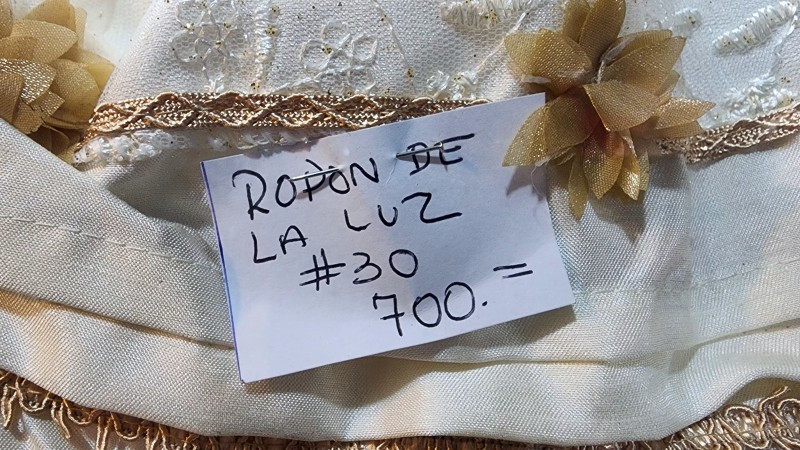 ROPON DE
LA LUZ
#30
700.=